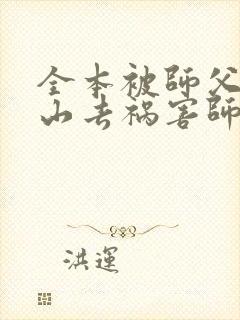 全本被師父
山去祸害師
洪運